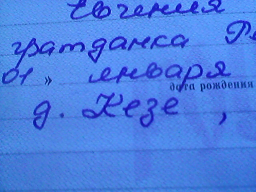 Евгения
гражданка Р
01 » января
дата рождения
д. Кезе ,